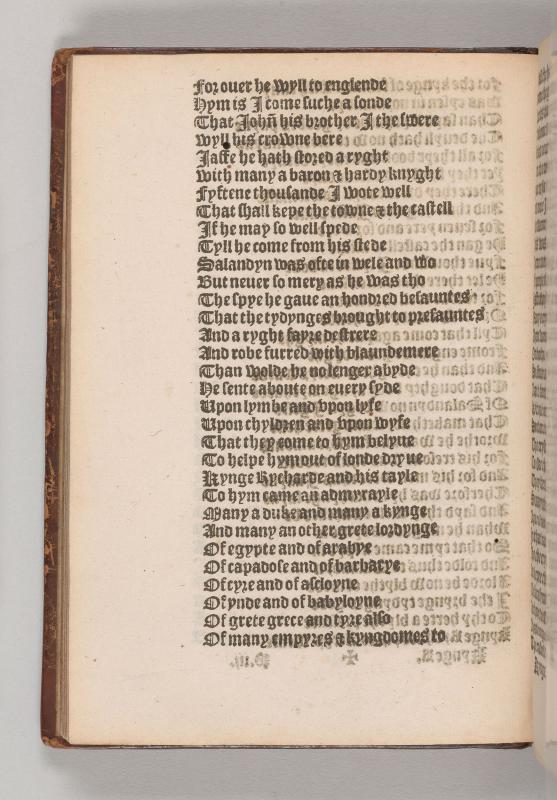 For ouer he wyll to englende
Hym is J come suche a sonde
That Joh̄n his brother J the swere
wyll his crowne bere
Jaffe he hath stored a ryght
with many a baron ⁊ hardy knyght
Fyftene thousande J wote well
That shall kepe the towne ⁊ the castell
Jf he may so well spede
Tyll he come from his stede
Salandyn was ofte in wele and wo
But neuer so mery as he was tho
The spye he gaue an hondred besauntes
That the tydynges brought to presauntes
And a ryght fayre destrere
And robe furred with blaundemere
Than wolde he no lenger abyde
He sente aboute on euery syde
Upon lymbe and vpon lyfe
Upon chyldren and vpon wyfe
That they come to hym belyue
To helpe hym out of londe dryue
Kynge Rycharde and his tayle
To hym came an admyrayle
Many a duke and many a kynge
And many an other grete lordynge
Of egypte and of arabye
Of capadose and of barbarye
Of tyre and of ascloyne
Of ynde and of babyloyne
Of grete grece and tyre also
Of many empyres ⁊ kyngdomes to